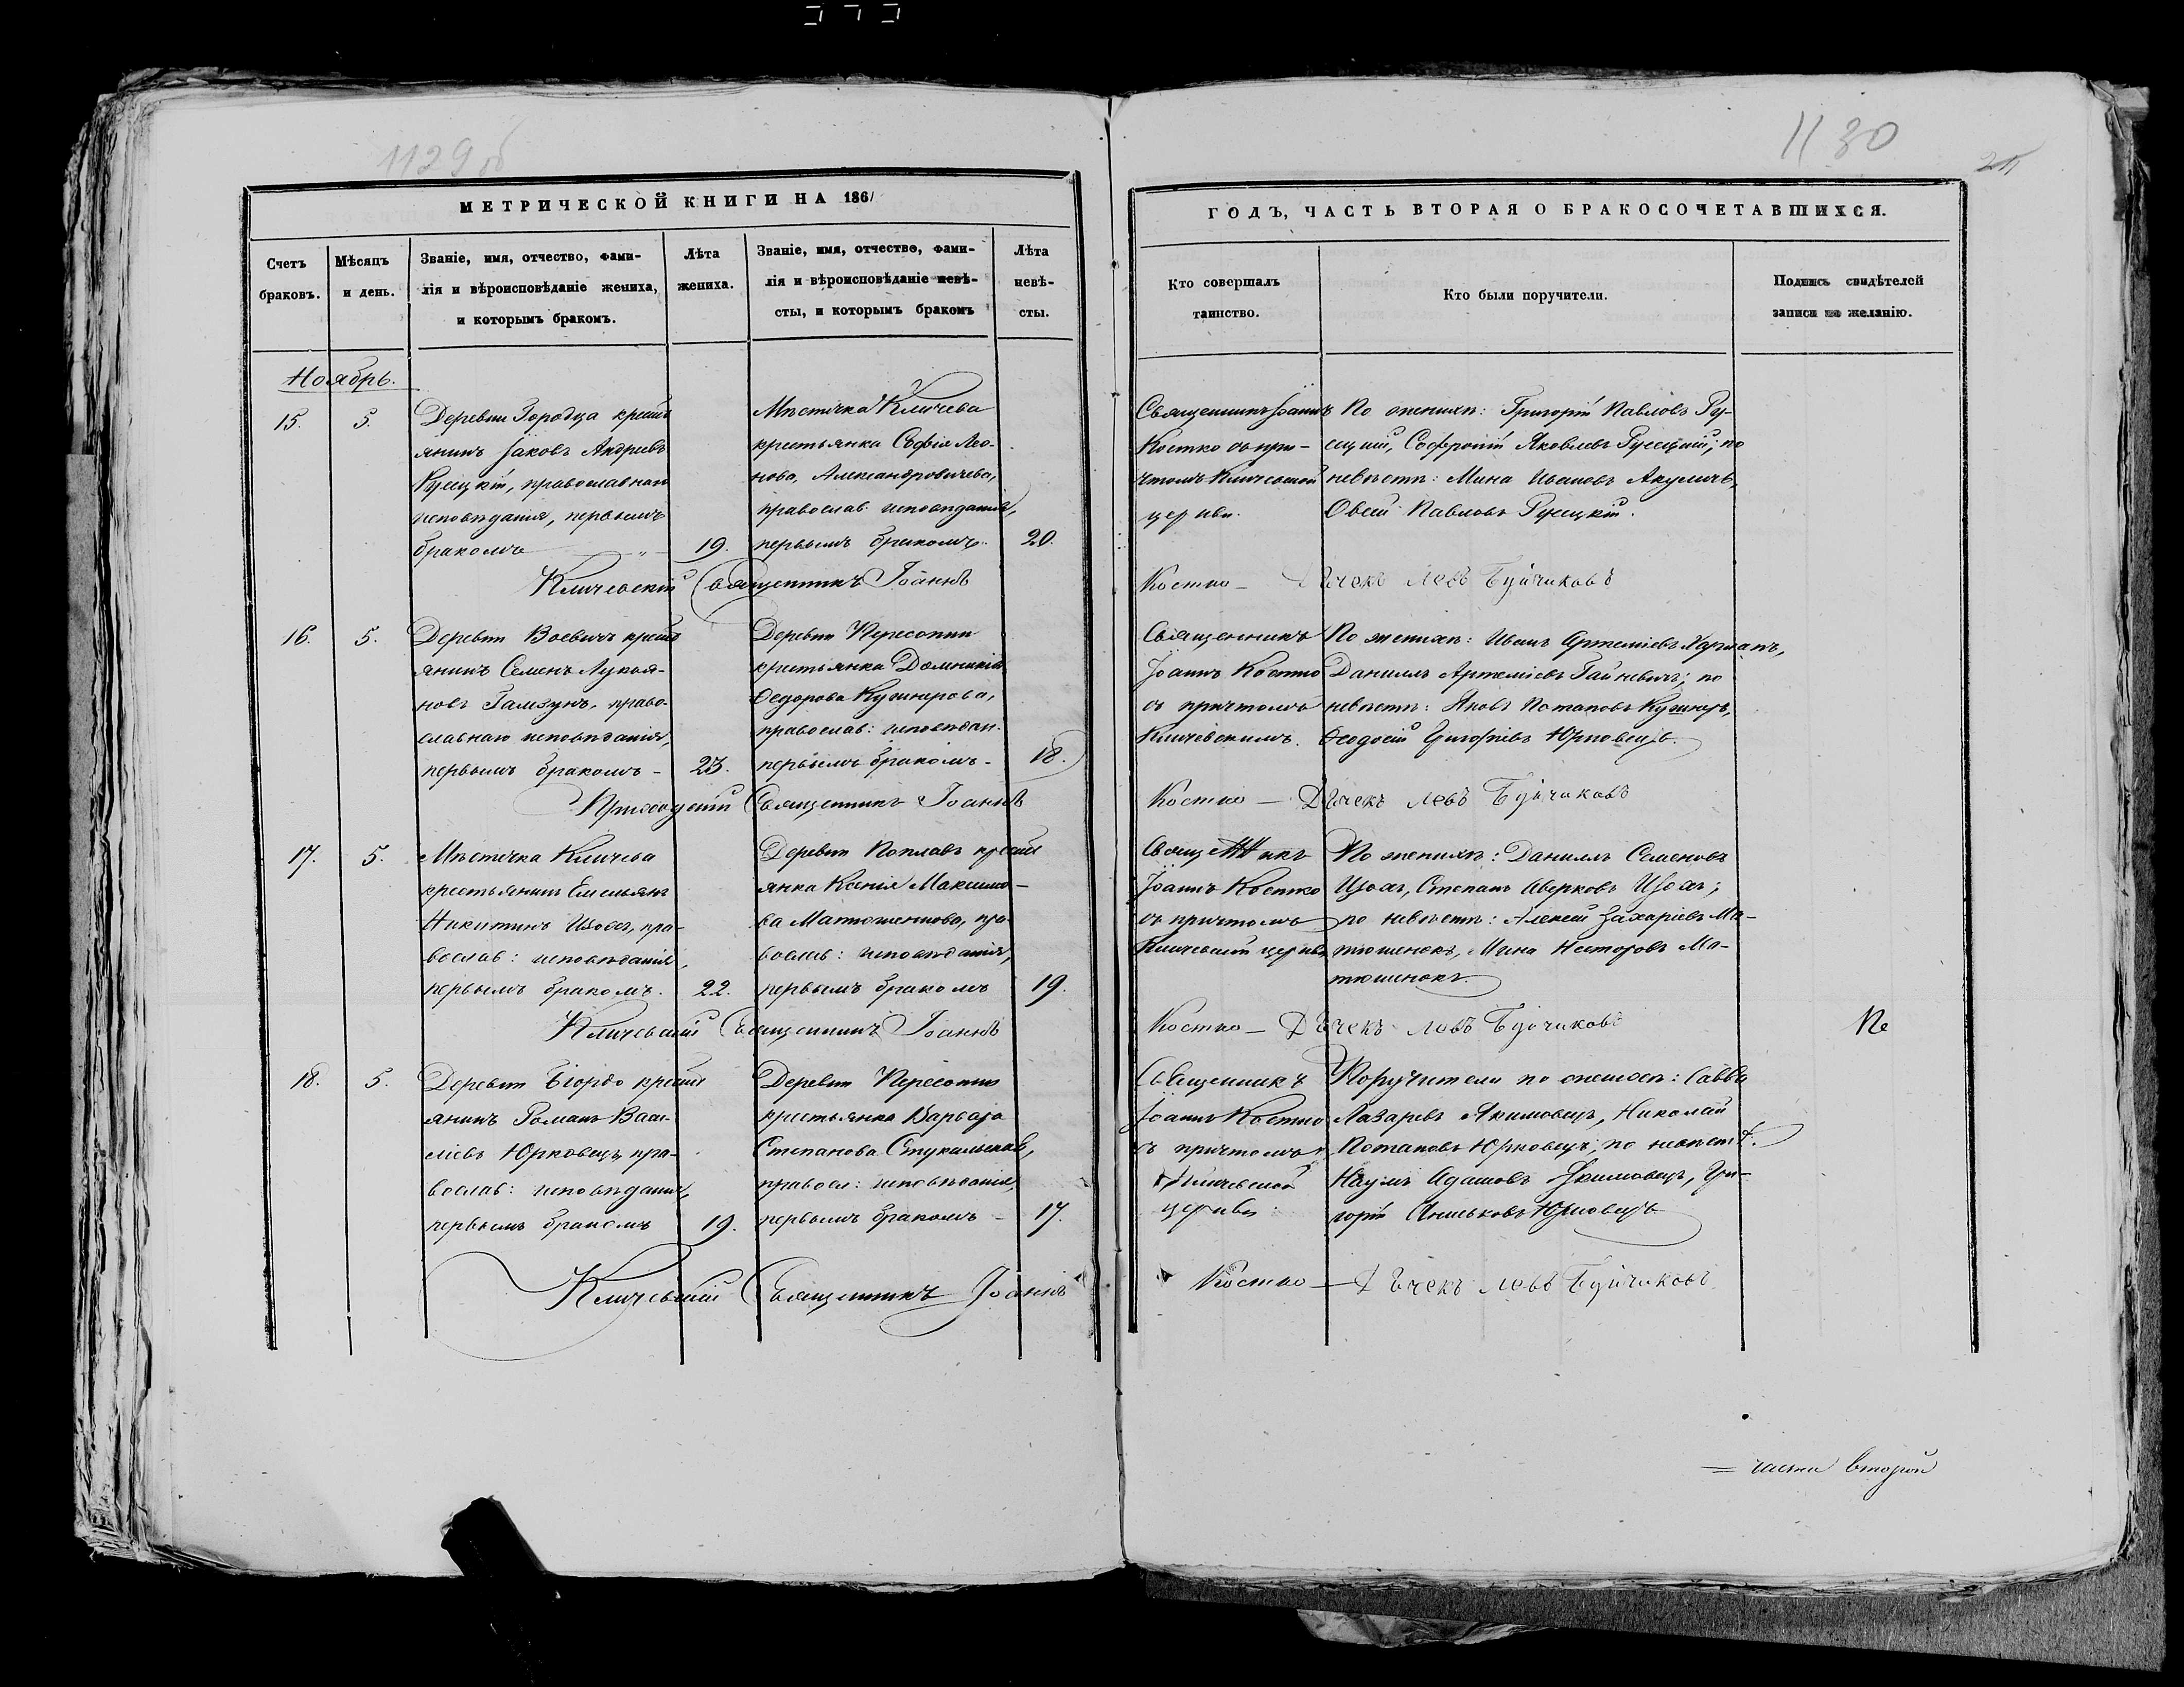 1129 об
МЕТРИЧЕСКОЙ КНИГИ НА 1861
Счетъ браковъ.
Мѣсяцъ и день.
Званіе, имя, отчество, фами-
лія и вѣроисповѣданіе жениха,
и которымъ бракомъ.
Лѣта жениха.
Званіе, имя, отчество, фами-
лія и вѣроисповѣданіе невѣ-
сты, и которымъ бракомъ
Лѣта невѣ-
сты.
Ноябрь.
15. 5.
Деревни Городца кресть
янинъ Іаковъ Андреевъ
Русецкій, православнаго
исповѣданія, первымъ
бракомъ 19.
Мѣстечка Кличева
крестьянка Софія Лео-
нова, Александровичева,
православ: исповѣданія,
первымъ бракомъ. 20.
Кличевскій Священникъ Іоаннъ
16. 5.
Деревни Воевичъ кресть
янинъ Семенъ Лукья-
новъ Гамзунъ, право-
славнаго исповѣданія,
первымъ бракомъ - 23.
Деревни Пересопни
крестьянка Домникія
Ѳедорова Кушнерова,
православ: исповѣдан.
первымъ бракомъ - 18.
Приходскій Священникъ Іоаннъ
17. 5.
Мѣстечка Кличева
крестьянинъ Емельянъ
Никитинъ Изохъ, пра-
вослав: исповѣданія,
первымъ бракомъ. 22.
Деревни Поплавъ кресть
янка Ксенія Максимо-
ва Матюшенкова, пра-
вослав: исповѣданія,
первымъ бракомъ 19.
Кличевскій Священникъ Іоаннъ
18. 5.
Деревни Біордо кресть
янинъ Романъ Васи-
ліевъ Юрковецъ, пра-
вослав: исповѣданія,
первымъ бракомъ 19.
Деревни Пересопни
крестьянка Варвара
Степанова Стукальская,
правосл: исповѣданія,
первымъ бракомъ - 17.
Кличевскій Священникъ Іоаннъ
1130
ГОДЪ, ЧАСТЬ ВТОРАЯ О БРАКОСОЧЕТАВШИХСЯ.
Кто совершалъ
таинство.
Кто были поручители.
Подпись свидѣтелей
записи по желанію.
Священникъ Іоаннъ
Костко съ при-
чтомъ Кличевской
церкви.
По женихѣ: Григорій Павловъ Ру-
сецкій, Софроній Яковлевъ Русецкій; по
невѣстѣ: Мина Ивановъ Акуличъ,
Овсей Павловъ Русецкій.
Костко - Дьячекъ Левъ Буйчиковъ
Священникъ
Іоаннъ Костко
съ причтомъ
Кличевскимъ.
По женихѣ: Иванъ Артеміевъ Харланъ,
Даниилъ Артеміевъ Гайкевичъ; по
невѣстѣ: Яковъ Потаповъ Кушнеръ,
Ѳеодосій Григоріевъ Юрковецъ.
Костко - Дьячекъ Левъ Буйчиковъ
Священникъ
Іоаннъ Костко
съ причтомъ
Кличевской церкви
По женихѣ: Даниилъ Семеновъ
Изохъ, Степанъ Аверковъ Изохъ;
по невѣстѣ: Алексѣй Захаріевъ Ма-
тюшенокъ, Мина Несторовъ Ма-
тюшенокъ.
Костко - Дьячекъ Левъ Буйчиковъ
Священникъ
Іоаннъ Костко
съ причтомъ
Кличевской
церкви:
Поручители по женихѣ: Савва
Лазаревъ Якимовецъ, Николай
Потаповъ Юрковецъ; по невѣстѣ.
Наумъ Адамовъ Якимовецъ, Гри-
горій Аниськовъ Юрковецъ
Костко - Дьячекъ Левъ Буйчиковъ
= части второй